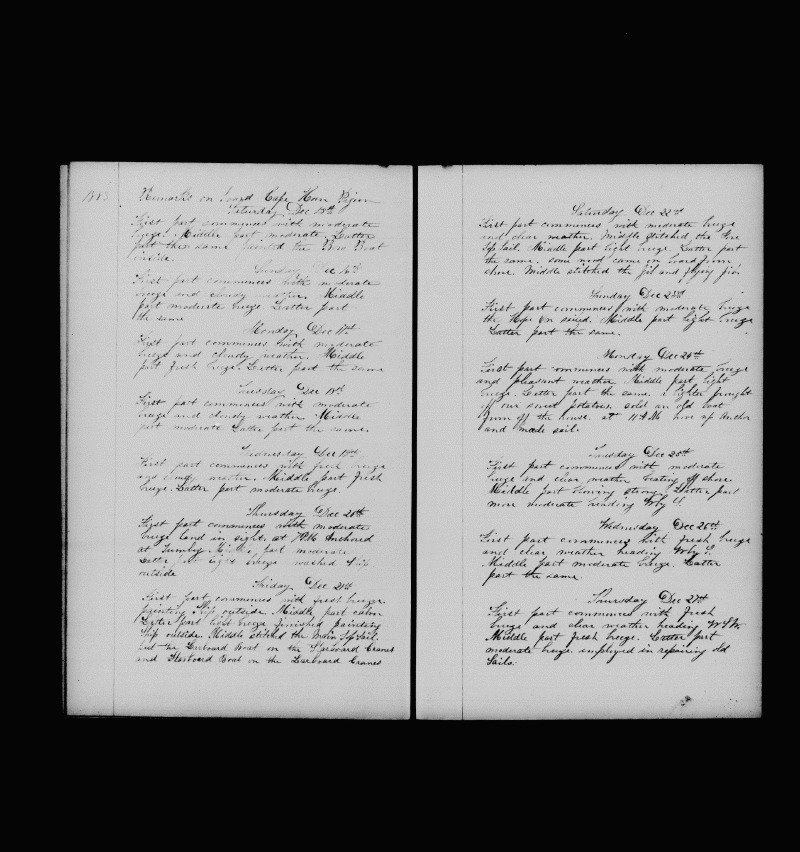 1883
Remarks on board Cape Horn Pigeon
Saturday Dec 15th
First part commences with moderate
breeze. Middle part moderate. Latter
part the same painted the Bow Boat
inside.
Sunday Dec 16th
First part commences with moderate
breeze and cloudy weather. Middle
part moderate breeze. Latter part
the same
Monday Dec 17th
First part commences with moderate
breeze and cloudy weather. Middle
part fresh breeze. Latter part the same
Tuesday Dec 18th
First part commences with moderate
breeze and cloudy weather. Middle
part moderate Latter part the same.
Wednesday Dec 19th
First part commences with fresh breeze
and cloudy weather. Middle part fresh
breeze. Latter part moderate breeze.
Thursday Dec 20th
First part commences with moderate
breeze land in sight. at 7PM Anchored
at Tumbez Middle part moderate
Latter part light breeze washed Ship
outside
Friday Dec 21st
First part commences with fresh breeze
painting Ship outside. Middle part calm
Latter part light breeze finished painting
Ship outside. Middle stitched the Main Topsail.
put the Larboard Boat on the Starboard Cranes
and Starboard Boat on the Larboard Cranes
Saturday Dec 22nd
First part commences with moderate breeze
and clear weather. Middle stitched the Fore
Top Sail. Middle part light breeze. Latter part
the same. some wood came on board from
shore. Middle stitched the jib and flying jib.
Sunday Dec 23rd
First part commences with moderate breeze
the
Middle part light breeze
Latter part the same.
Monday Dec 24th
First part commences with moderate breeze
and pleasant weather. Middle part light
breeze. Latter part the same. a lighter brought
off our sweet potatoes. sold an old boat
from off the house. at 11 AM hove up Anchor
and made sail.
Tuesday Dec 25th
First part commences with moderate
breeze and clear weather beating off shore.
Middle part blowing strong. Latter part
more moderate heading
Wednesday Dec 26th
First part commences with fresh breeze
and clear weather heading
Middle part moderate breeze. Latter
part the same.
Thursday Dec 27th
First part commences with fresh
breeze and clear weather heading WSW
Middle part fresh breeze. Latter part
moderate breeze. imployed in repairing old
Sails.